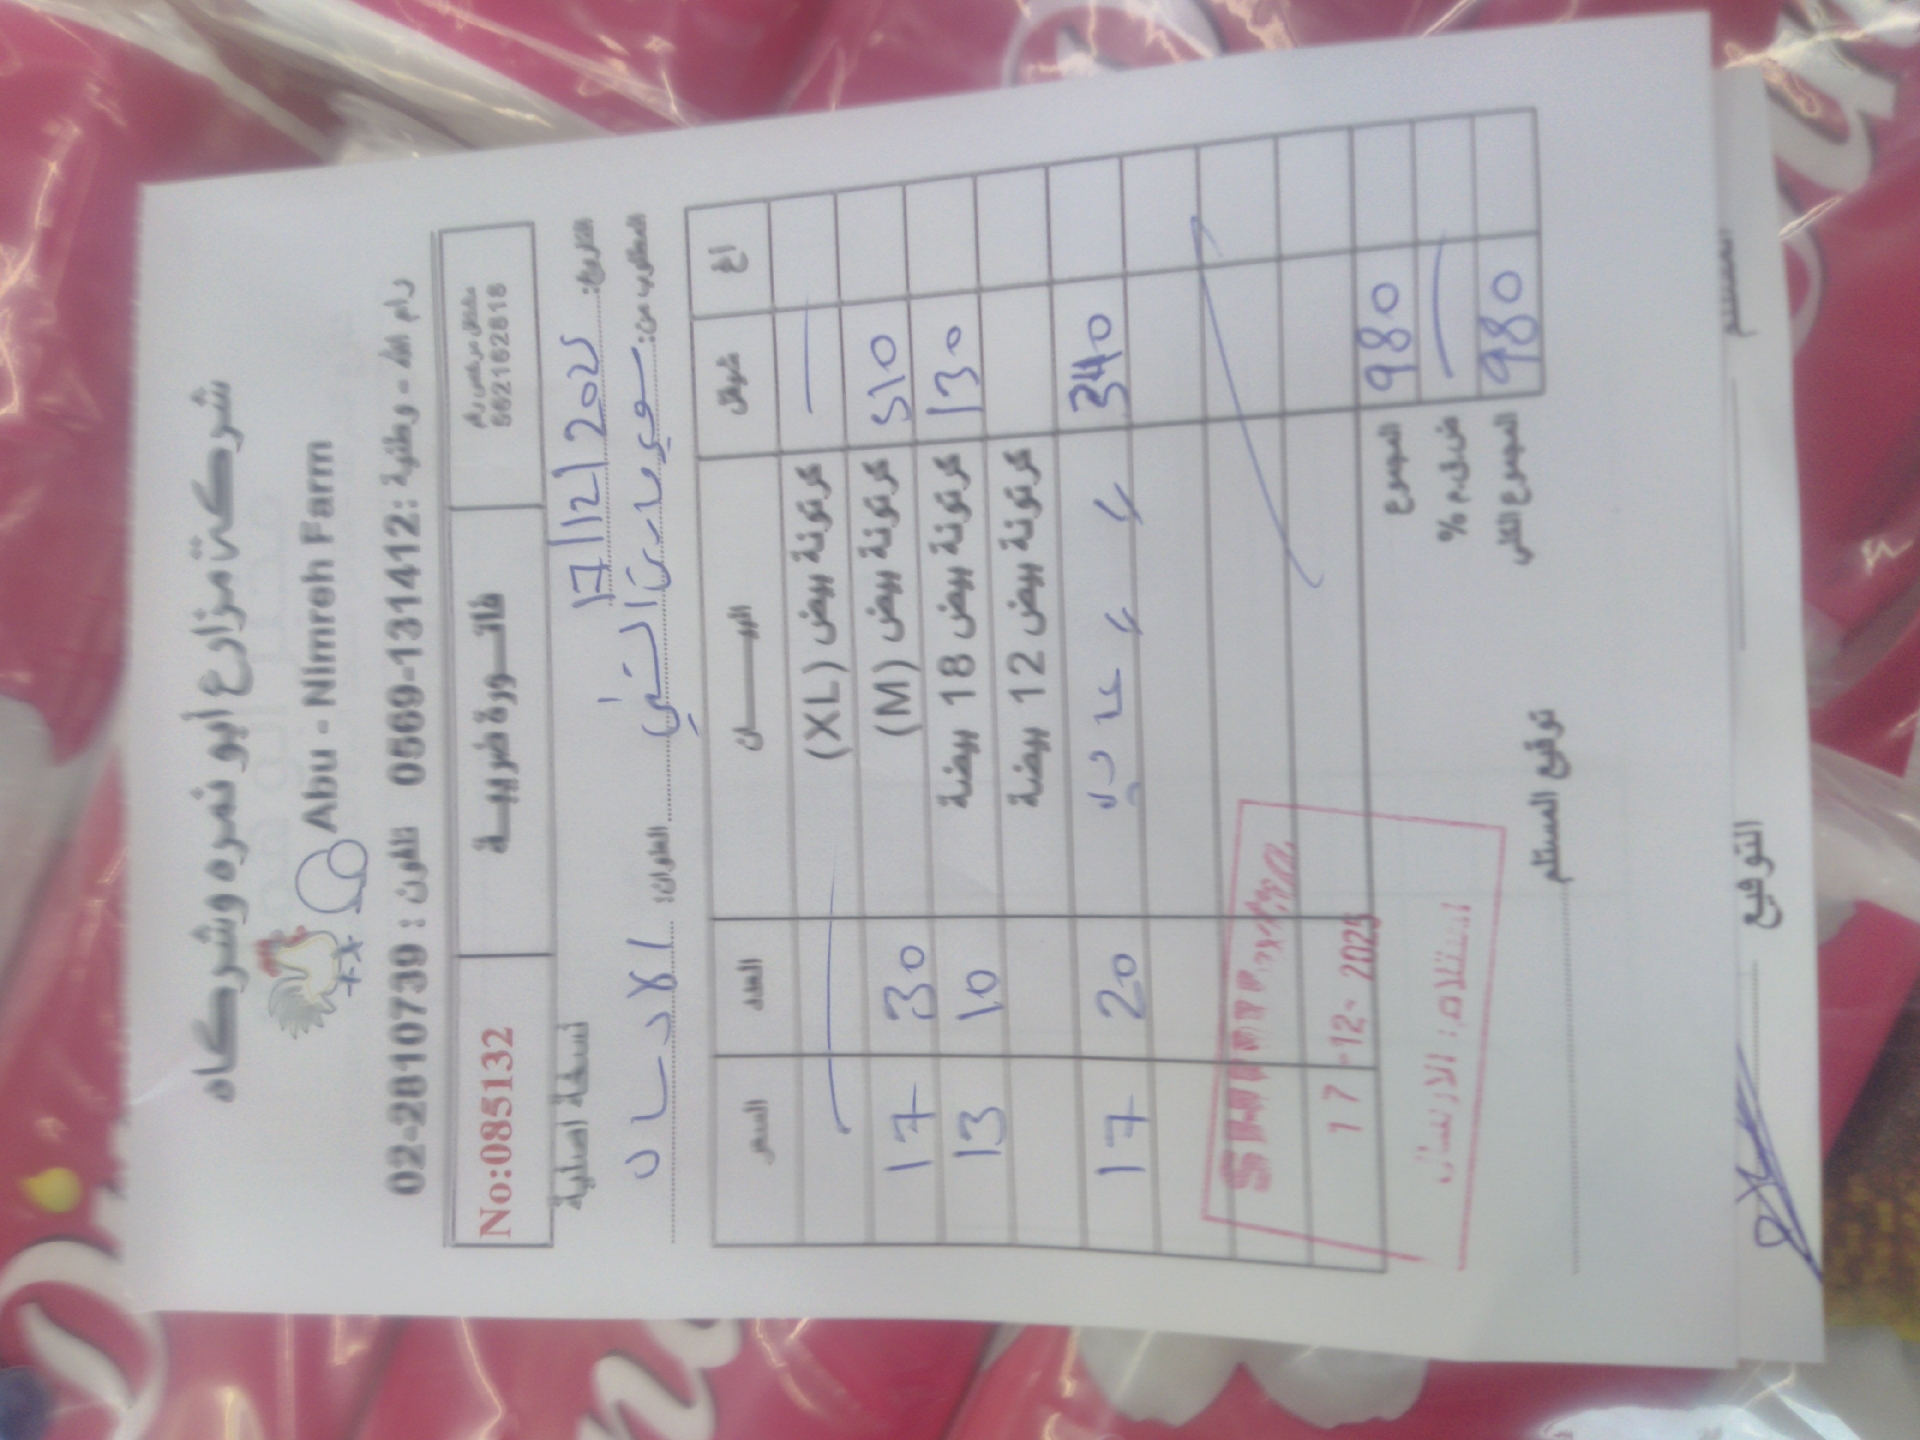 شركة مزارع أبو نمره وشركاه
Abu - Nimreh Farm
رام الله - وطنية : 0569-131412 تلفون : 02-2810739
مشتغل مرخص رقم
562162618
فاتورة ضريبية
No:085132
نسخة اصلية
التاريخ: 17/12/2025
المطلوب من: سوبر ماركت
العنوان: الارسال
السعر العدد البيــــان شيكل اغ
كرتونة بيض (XL)
17 30 كرتونة بيض (M) 510
13 10 كرتونة بيض 18 بيضة 130
كرتونة بيض 12 بيضة
17 20 340
المجموع 980
ض.ق.م %
المجموع الكلي 980
17-12-2025
استلام: الارسال
توقيع المستلم
التوقيع
المستلم